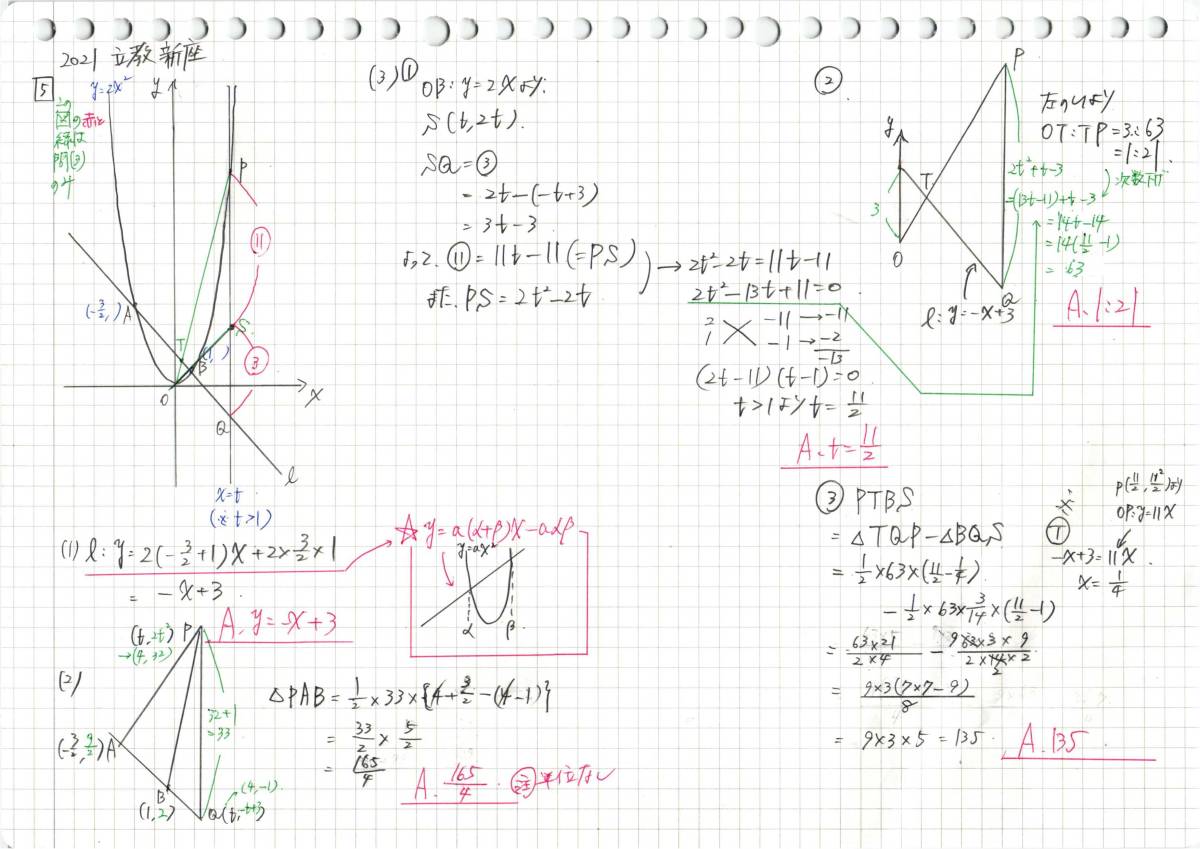 2021 立教新座
5
y=2x²
y
この
図の赤と
緑は
問(3)
のみ
P
⑪
S
③
A
(-3/2, )
T
B
(1, )
O
x
Q
l
x=t
(∵t>1)
(1) l: y=2(-3/2+1)x+2×3/2×1
= -x+3
A. y=-x+3
☆ y=a(α+β)x-aαβ
y=ax²
α β
(2)
(t, 2t²)
→(4, 32)
P
32+1
=33
(-3/2, 9/2) A
B
(1, 2)
(4, -1)
Q(t, -t+3)
△PAB = 1/2×33×{4+3/2-(4-1)}
= 33/2 × 5/2
= 165/4
A. 165/4 注 単位なし
(3) ①
OB: y=2xより.
S(t, 2t).
SQ=③
= 2t-(-t+3)
= 3t-3
よって. ⑪=11t-11(=PS)
また. PS=2t²-2t
→ 2t²-2t=11t-11
2t²-13t+11=0
2 -11 → -11
1 -1 → -2
-13
(2t-11)(t-1)=0
t>1よりt=11/2
A. t=11/2
②
P
y
T
3
O
Q
l: y=-x+3
2t²+t-3
=(13t-11)+t-3
=14t-14
=14(11/2-1)
=63
次数下げ
左のlより
OT:TP=3:63
=1:21
A. 1:21
③ PTBS
= △TQP-△BQS
= 1/2×63×(11/2-1/4)
- 1/2×63×3/14×(11/2-1)
= 63×21/2×4 - 9 63×3×9/2×14×2 2
= 9×3(7×7-9)/8
= 9×3×5=135.
A. 135
※
P(11/2, 11²/2)より
OP: y=11x
Ⓣ
-x+3=11x
x=1/4